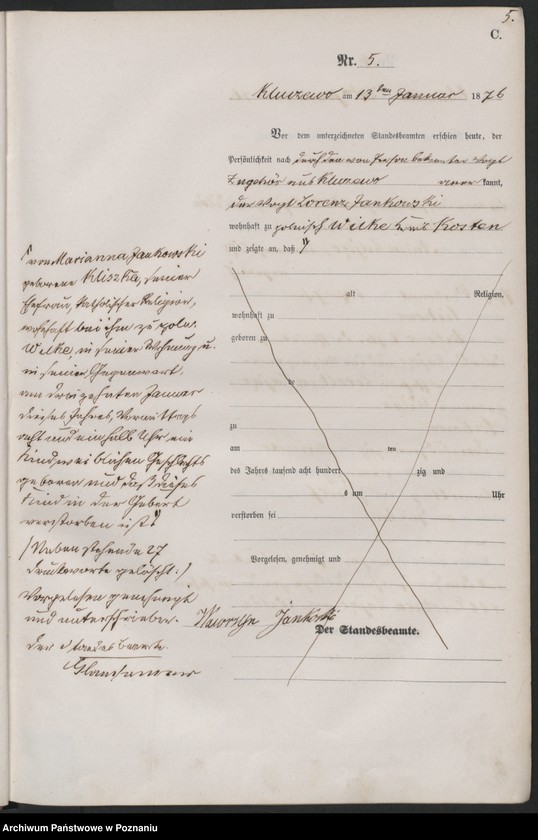 5.
C.
Nr. 5.
Kluczewo am 13ten Januar 1876
Vor dem unterzeichneten Standesbeamten erschien heute, der
Persönlichkeit nach durch den von Person bekannten Vogt
aus Kluczewo anerkannt,
der Vogt Lorenz Jankowski
wohnhaft zu polnisch Wilke Kreis Kosten
und zeigte an, daß
von Marianna Jankowski
geborene Kliszka, seiner
Ehefrau, katholischer Religion,
wohnhaft bei ihm zu poln.
Wilke, in seiner Wohnung u.
in seiner Gegenwart,
am dreizehnten Januar
dieses Jahres, Vormittags
acht und einhalb Uhr ein
Kind weiblichen Geschlechts
geboren und daß dieses
Kind in der Geburt
verstorben ist.
alt Religion,
wohnhaft zu
geboren zu
zu
am ten
des Jahres tausend acht hundert zig und
s um Uhr
verstorben sei
Vorgelesen, genehmigt und
(Nebenstehende 27
Druckworte gelöscht.)
Vorgelesen genehmigt
und unterschrieben. Wawrzyn Jankoski
Der Standesbeamte.
der Standesbeamte.
Archiwum Państwowe w Poznaniu